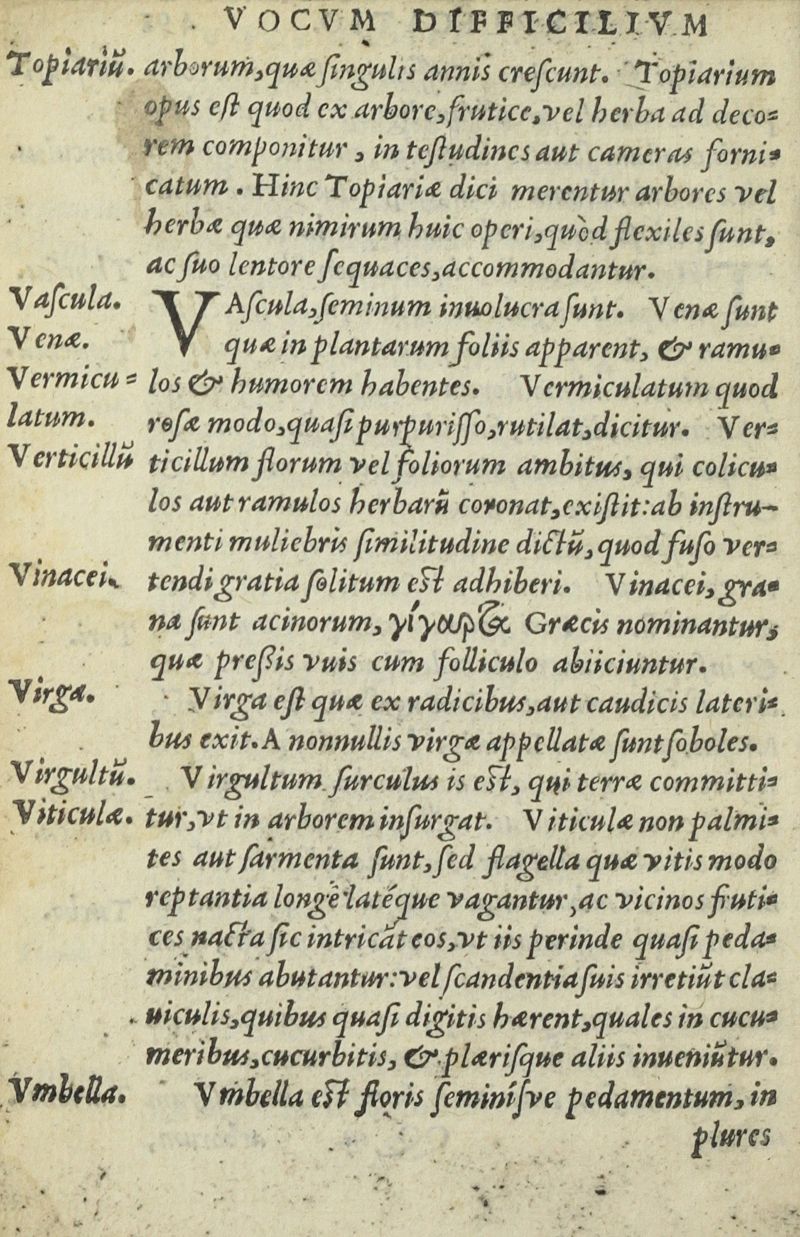 VOCVM DIFFICILIVM
Topiariū. arborum, quæ ſingulis annis creſcunt. Topiarium
opus eſt quod ex arbore, frutice, vel herba ad deco-
rem componitur, in teſtudines aut cameras forni-
catum. Hinc Topiariæ dici merentur arbores vel
herbæ quæ nimirum huic operi, quòd flexiles ſunt,
ac ſuo lentore ſequaces, accommodantur.
Vaſcula. VAſcula, ſeminum inuolucra ſunt. Venæ ſunt
Venæ. quæ in plantarum foliis apparent, & ramu-
Vermicu- los & humorem habentes. Vermiculatum quod
latum. roſæ modo, quaſi purpuriſſo, rutilat, dicitur. Ver-
Verticillū ticillum florum vel foliorum ambitus, qui colicu-
los aut ramulos herbarū coronat, exiſtit: ab inſtru-
menti muliebris ſimilitudine dictū, quod fuſo ver-
Vinacei. tendi gratia ſolitum eſt adhiberi. Vinacei, gra-
na ſunt acinorum, γίγαρϐα Græcis nominantur,
quæ preßis vuis cum folliculo abiiciuntur.
Virga. Virga eſt quæ ex radicibus, aut caudicis lateri-
bus exit. A nonnullis virgæ appellatæ ſunt ſoboles.
Virgultū. Virgultum ſurculus is eſt, qui terræ committi-
Viticulæ. tur, vt in arborem inſurgat. Viticulæ non palmi-
tes aut ſarmenta ſunt, ſed flagella quæ vitis modo
reptantia longè latéque vagantur, ac vicinos fruti-
ces nacta ſic intricāt eos, vt iis perinde quaſi peda-
minibus abutantur: vel ſcandentia ſuis irretiūt cla-
uiculis, quibus quaſi digitis hærent, quales in cucu-
meribus, cucurbitis, & plæriſque aliis inueniūtur.
Vmbella. Vmbella eſt floris ſeminíſve pedamentum, in
plures